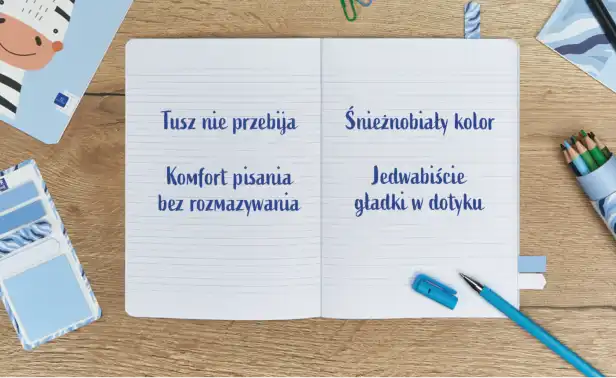 Tusz nie przebija
Komfort pisania
bez rozmazywania
Śnieżnobiały kolor
Jedwabiście
gładki w dotyku